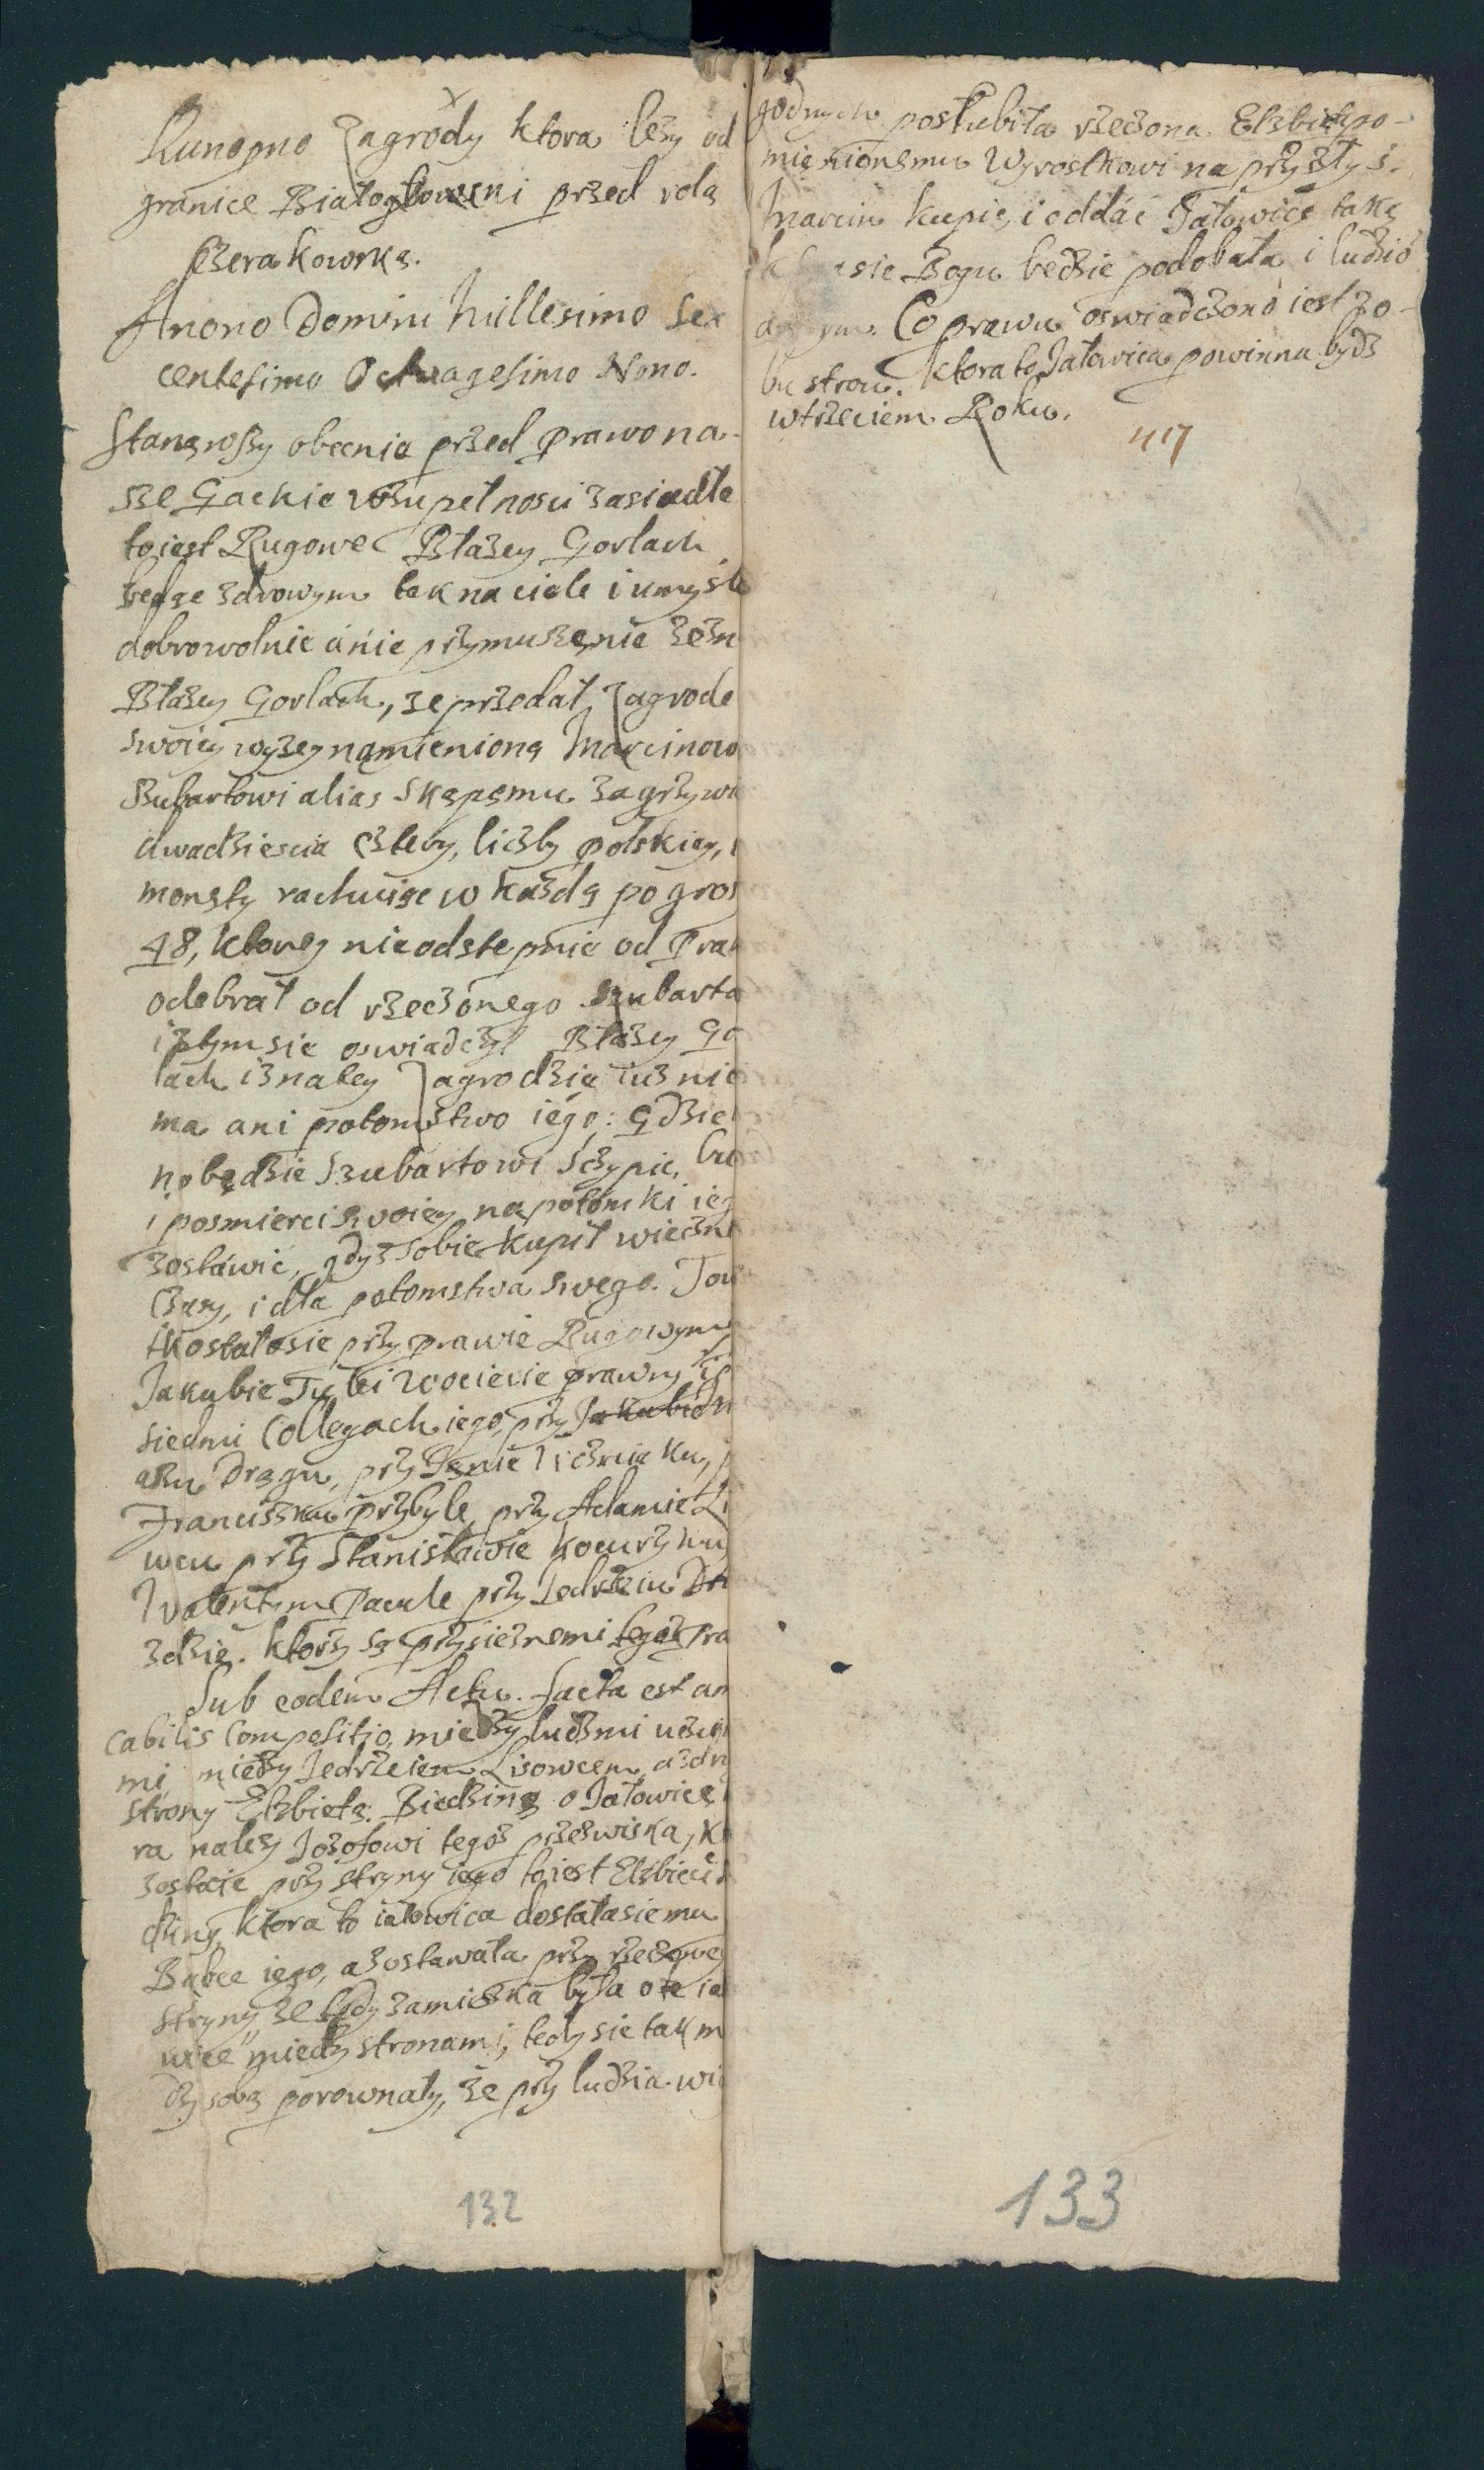 Kunopno Zagrody ktora leży od
granice Białogłoweni przed rolą
szerakowską.
Anono Domini Millesimo Sex
centesimo Octuagesimo Nono.
Stanąwszy obecnie przed prawo na-
sze Gackie wzupełnosci zasiadłe
toiest Rugowe Błazey Gorlach
będąc zdrowym tak na ciele i umyśle
dobrowolnie á nie przymuszenie Zezn
Błazey Gorlach, ze przedał Zagrode
swoię wyzey namienioną Marcinow
Szubartowi alias Skąpemu za grzywi
dwadziescia cztery, liczby polskiey,
monety rachuiąc w każdą po gros
48, ktorey nieodstepnie od Praw
odebrał od rzeczonego Szubarta
i ztym sie oswiadczył Błazey Go
lach iz na tey Zagrodzie iuz nic
ma ani potomstwo iego: gdzie
no będzie Szubartowi
i po smierci swoiey na potomki ieg
zostáwić, gdyz sobie kupił wieczn
czasy, i dla potomstwa swego. To
stało sie przy prawie Rugowym
Jakubie wociecie prawny
siedmi Collegach iego, przy Jakubie
Drągu, przy Janie
Franciszku przybyle, przy Adamie Li
wcu przy Stanisławie Kocurzku,
Walentym Pacule przy Jedrzeiu
zdzie. ktorzy są przysieznemi tegoz Pra
Sub eodem Actu. facta est am
cabilis Compositio, miedzy ludzmi uczci
mi miedzy Jedrzeiem Lisowcem a z dru
strony Elzbietą Biedziną o Jałowicę
ra nalezy Jozefowi tegoz przezwiska, k
zostaie przy stryny iego toiest Elzbiecie
dziny, ktora to iałowica dostała sie mu
Babce iego, a zostawała przy rzeczoney
stryny, ze tedy zamieszka była o te ia
wice miedzy stronami, tedy sie tak m
dzy sobą porownały, że przy ludzia wi
132
godnych poslubiła rzeczona Elzbieta po-
mienionemu Wyrostkowi na przyszły ś.
Marcin kupić, i oddać Jałowicę taką
sie Bogu bedzie podobała i ludzió
Co prawu oswiadczono iest zo-
bu stron. ktora to Jałowica powinna bydz
w trzeciem Roku.
417
133